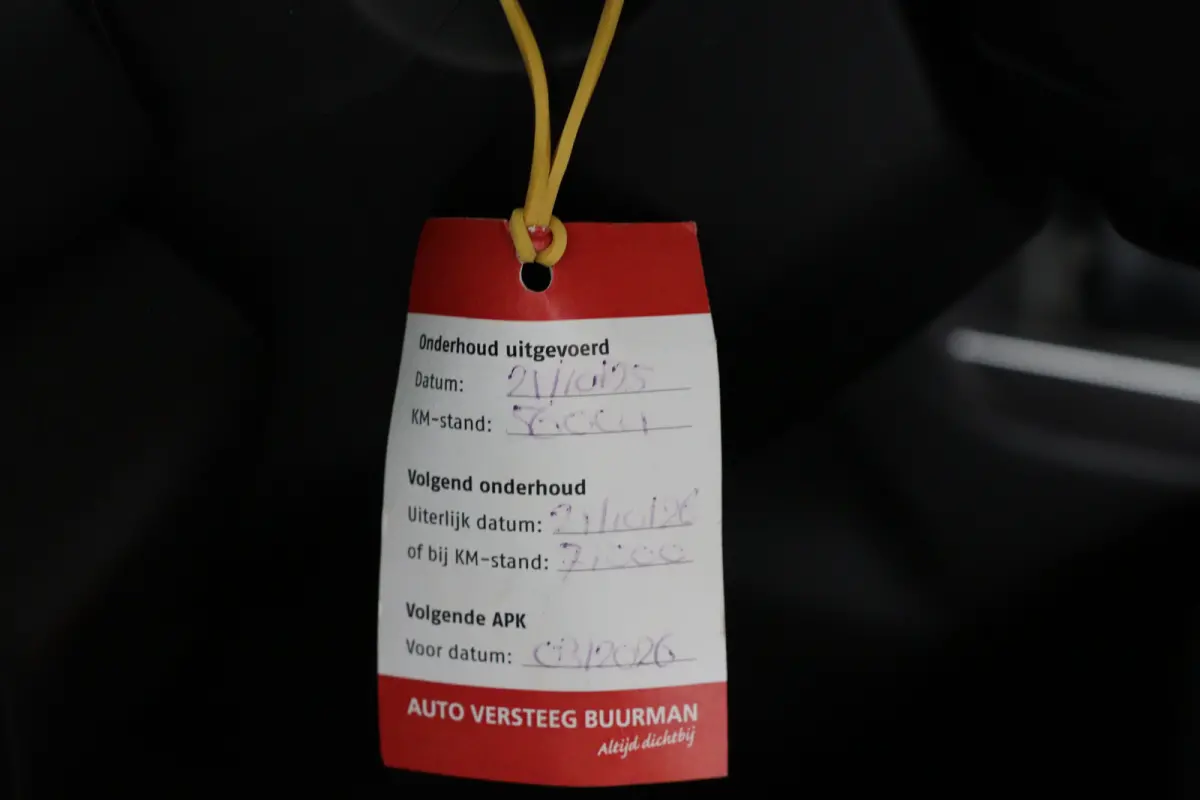 Onderhoud uitgevoerd
Datum: 21/10/25
KM-stand:
Volgend onderhoud
Uiterlijk datum: 21/10/26
of bij KM-stand:
Volgende APK
Voor datum: 03/2026
AUTO VERSTEEG BUURMAN
Altijd dichtbij